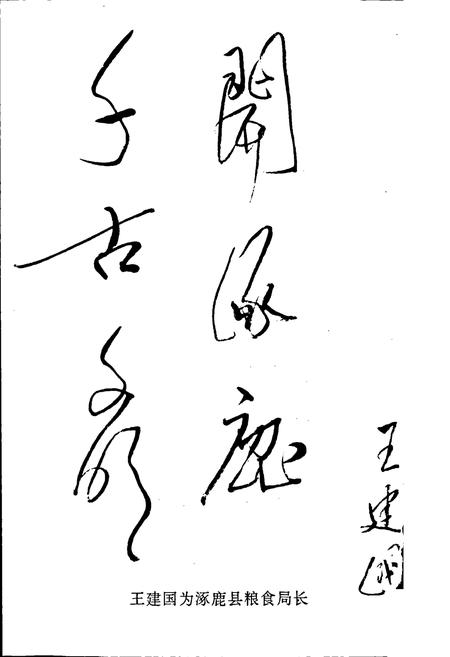 千古文明
開涿鹿
王建国
王建国为涿鹿县粮食局长